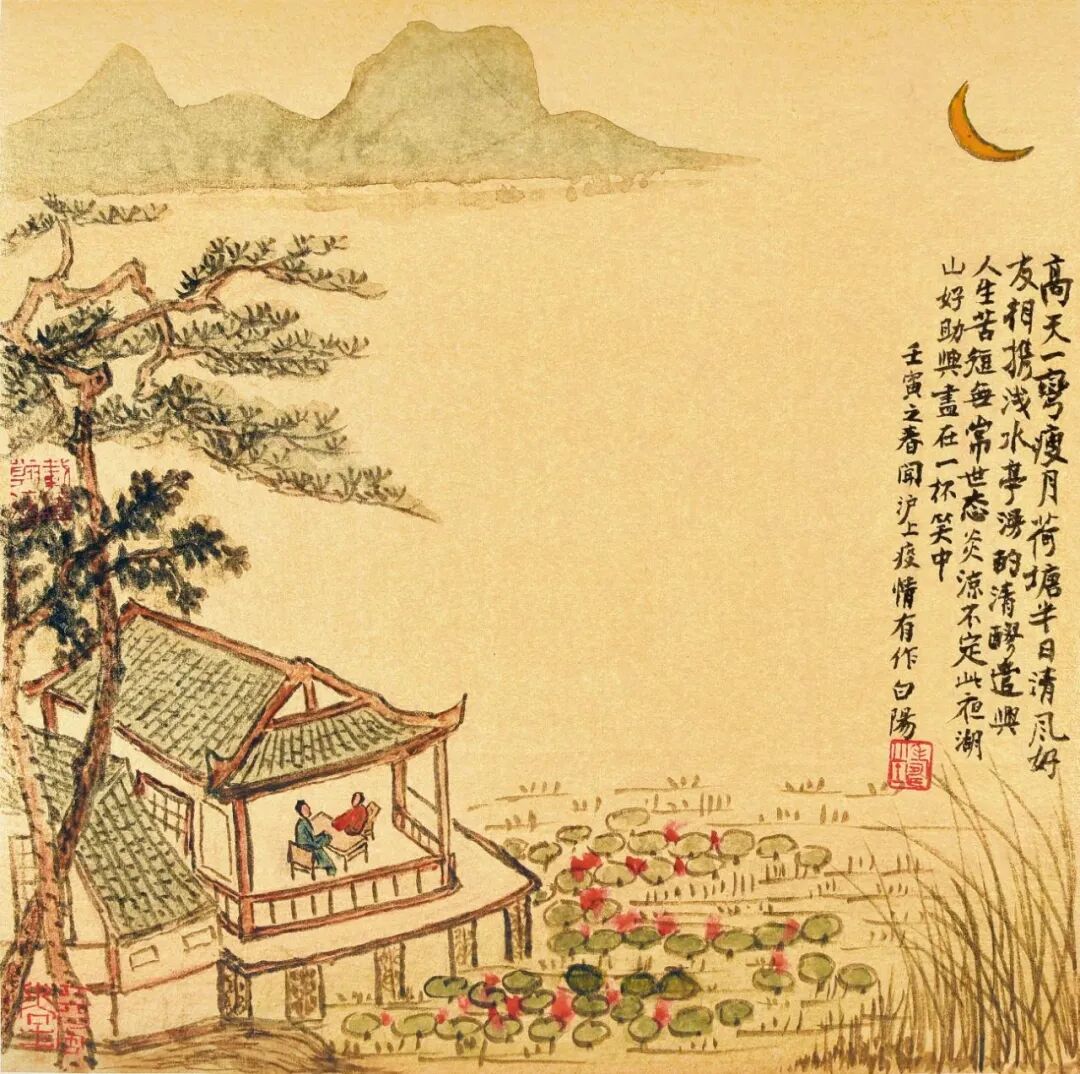 高天一弯瘦月荷塘半日清风好
友相携浅水亭湧的清醪遣興
人生苦短每常世态炎涼不定此夜湖
山好助興盡在一杯笑中
壬寅之春闻沪上疫情有作白陽